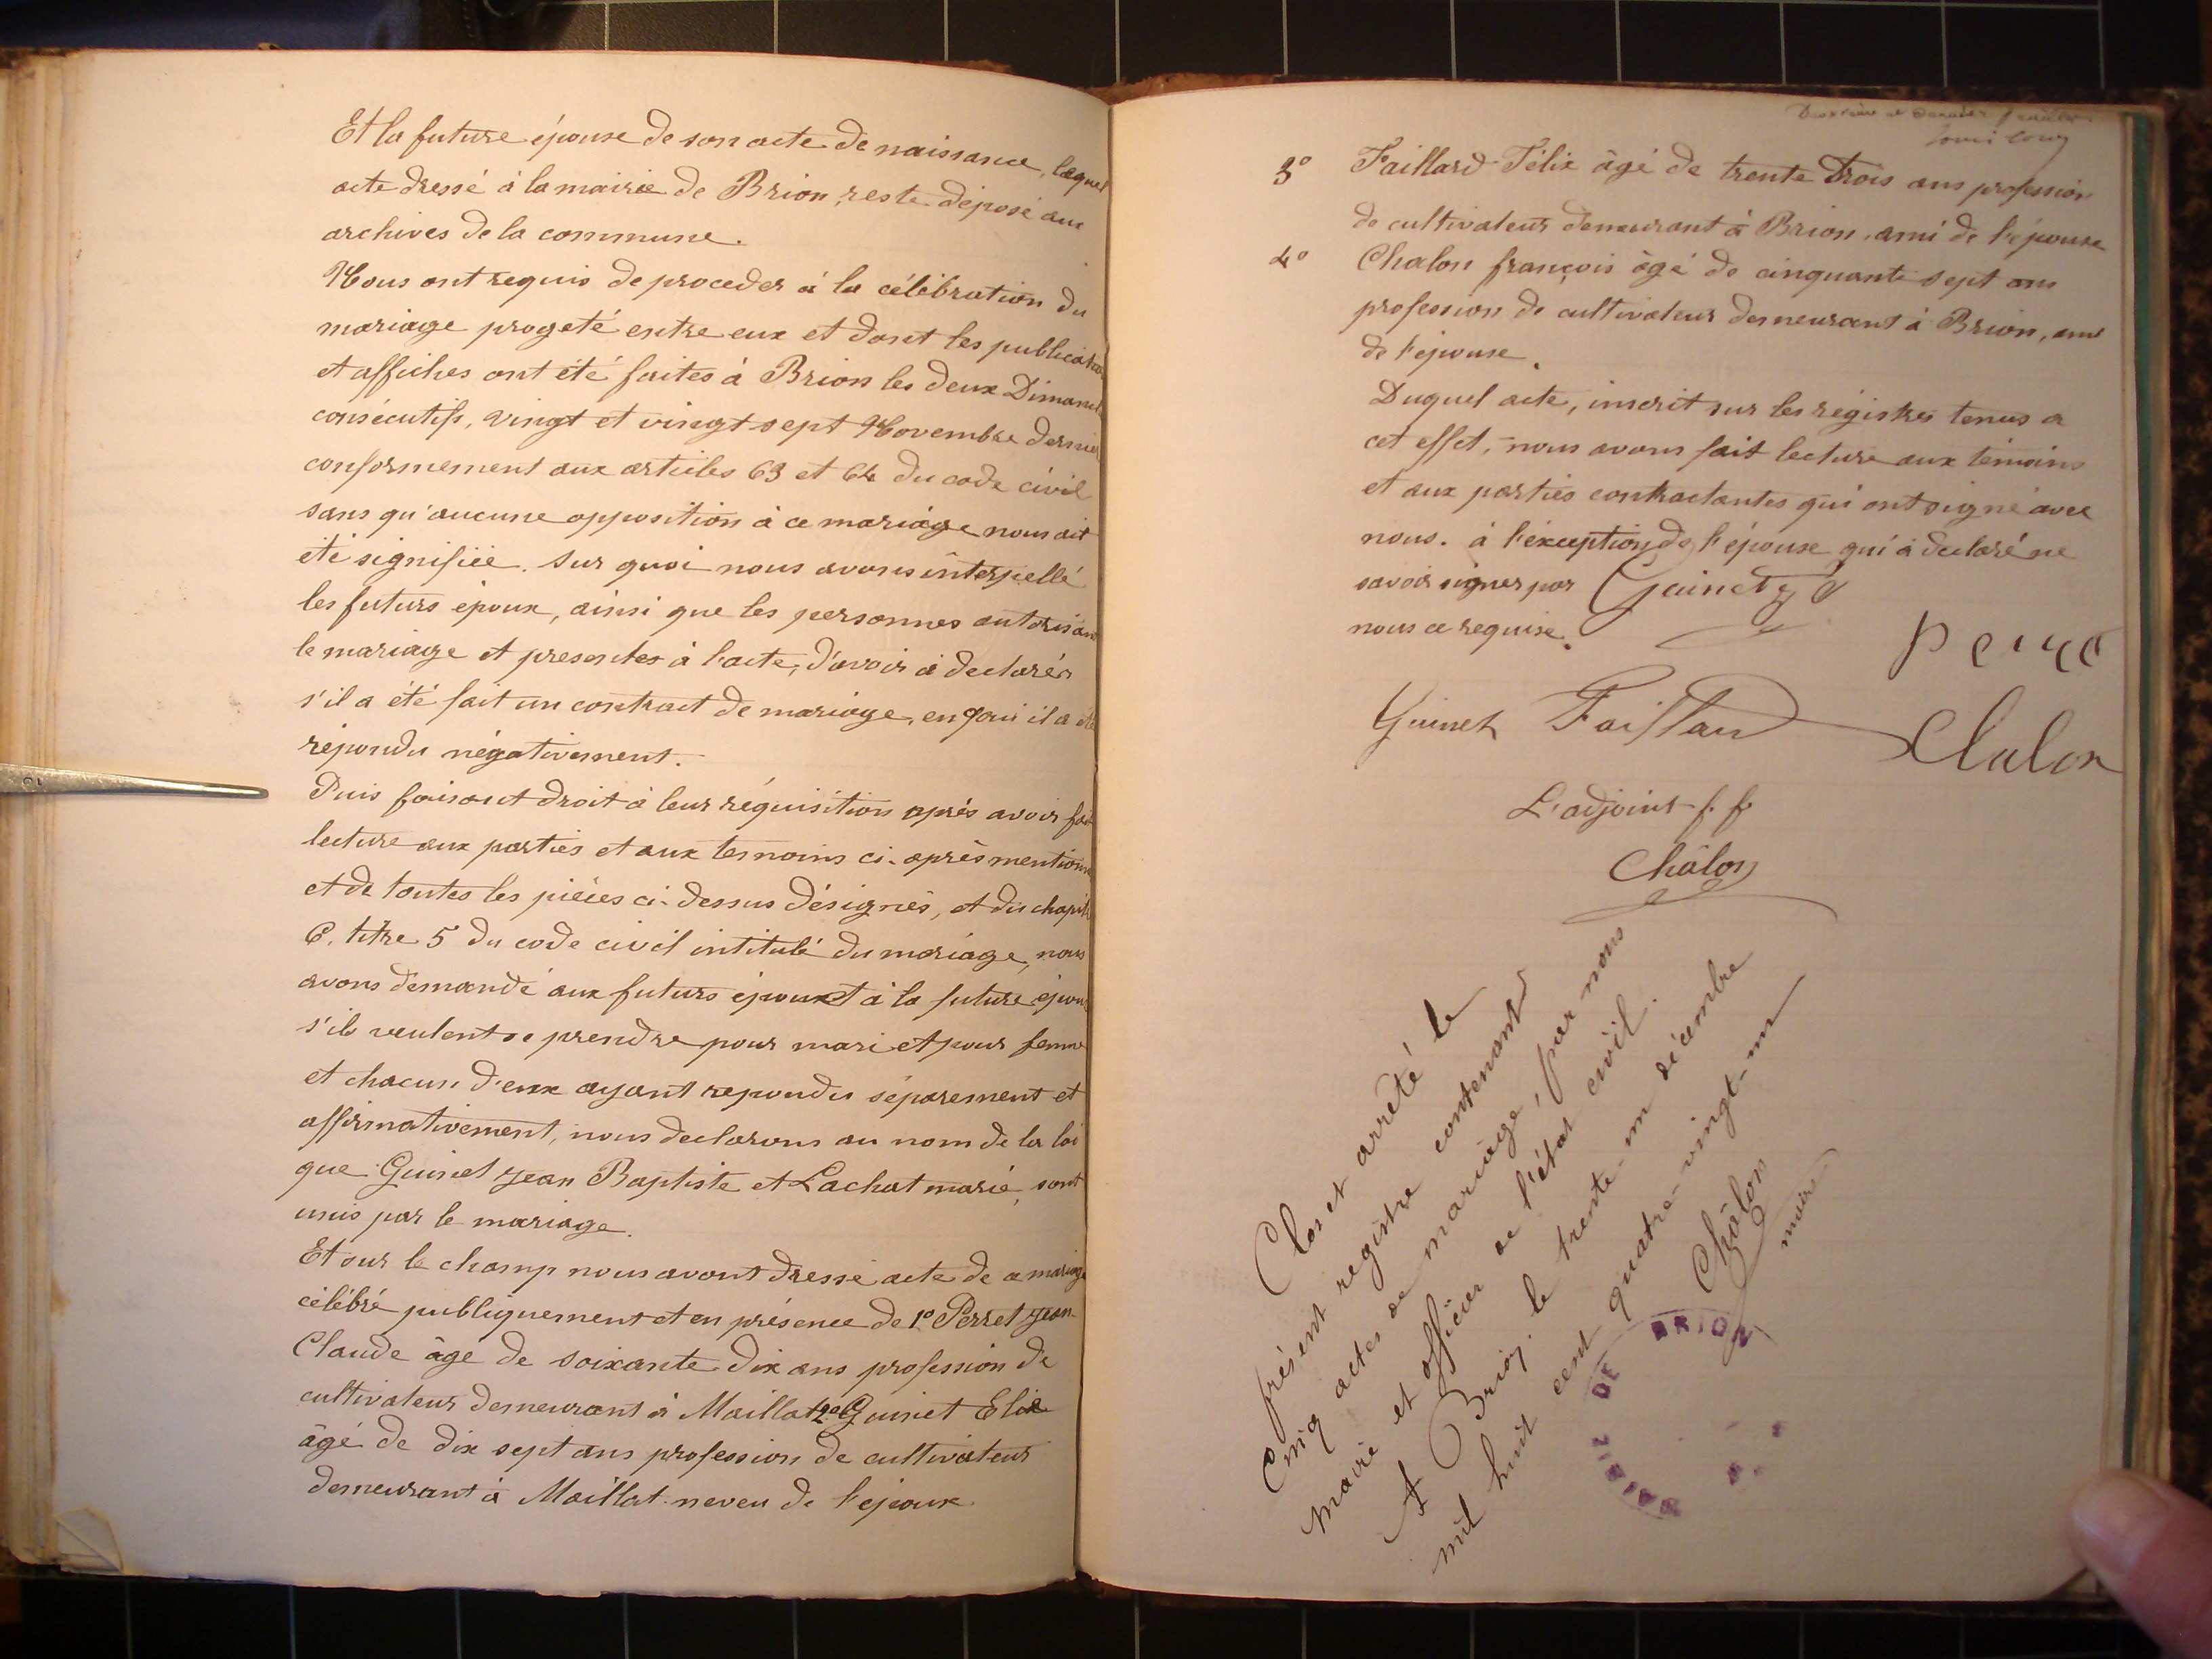 Et la future épouse de son acte de naissance, lequel
acte dressé à la mairie de Brion, reste déposé aux
archives de la commune.
Nous ont requis de proceder à la célébration du
mariage progeté entre eux et dont les publication
et affiches ont été faites à Brion les deux Dimanch
consécutifs, vingt et vingt sept Novembre dernier
conformement aux articles 63 et 64 du code civil
sans qu'aucune opposition à ce mariage nous ait
été signifiée. Sur quoi nous avons interpellé
les futurs époux, ainsi que les personnes autorisant
le mariage et presentes à l'acte, d'avoir à declarér
s'il a été fait un contrat de mariage, en quoi il a été
répondu négativement.
Puis faisant droit à leur réquisition après avoir fait
lecture aux parties et aux temoins ci-après mentionn
et de toutes les pièces ci-dessus désignés, et du chapit
6. titre 5 du code civil intitulé du mariage, nous
avons demandé aux futurs époux et à la future épou
s'ils veulent se prendre pour mari et pour femme
et chacun d'eux ayant repondu séparement et
affirmativement, nous declarons au nom de la loi
que Guinet Jean Baptiste et Lachat marie, sont
unis par le mariage.
Et sur le champ nous avont dressé acte de ce mariage
célébré publiquement et en présence de 1º Perret Jean
Claude âge de soixante dix ans profession de
cultivateur demeurant à Maillat 2º Guinet Elie
âgé de dix sept ans profession de cultivateur
demeurant à Maillat neveu de l'epoux
Deuxième et dernier feuillet
3º Faillard Félix âgé de trente trois ans profession
de cultivateur demeurant à Brion, ami de l'épouse
4º Chalon françois âgé de cinquante sept ans
profession de cultivateur demeurant à Brion, ami
de l'épouse.
Duquel acte, inscrit sur les régistres tenus a
cet effet, nous avons fait lecture aux témoins
et aux parties contractantes qui ont signé avec
nous. à l'exception de l'épouse qui à declaré ne
savoir signer par Guinet
nous ce requise.
Guinet Faillard Chalon
L'adjoint f. f.
Châlon
Clos et arrêté le
présent registre contenant
Cinq actes de mariage, par nous
maire et officier de l'état civil.
A Brion, le trente-un décembre
mil huit cent quatre-vingt-un
Châlon
maire
MAIRIE DE BRION